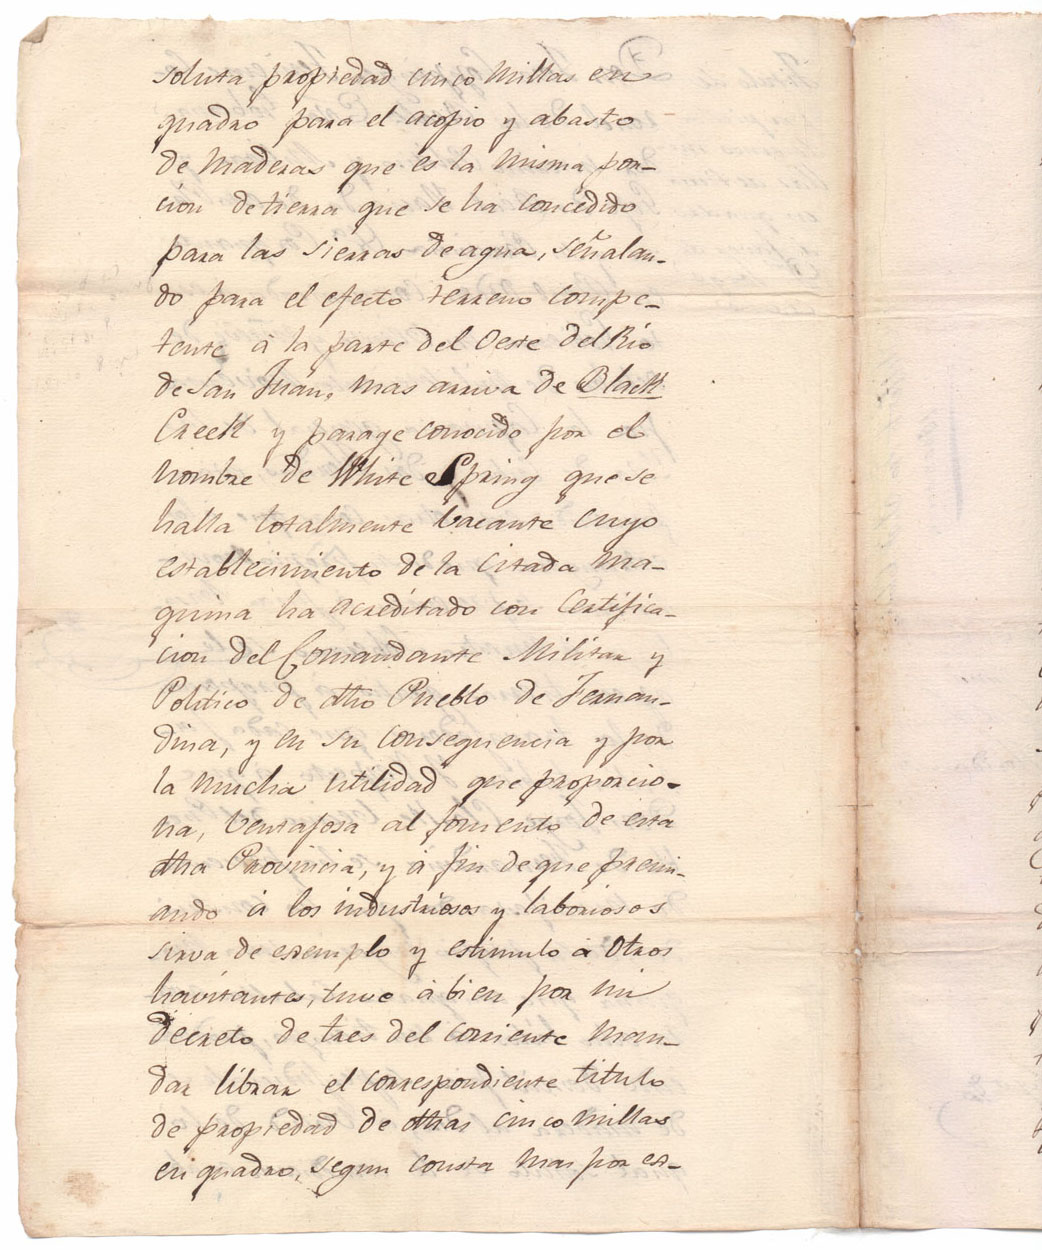 soluta propiedad cinco Millas en
quadro para el acopio y abasto
de Maderas que es la misma por-
cion de tierra que se ha concedido
para las sierras de agua, señalan-
do para el efecto terreno compe-
tente á la parte del Oeste del Rio
de San Juan, mas arriva de Black
Creek y parage conocido por el
nombre de White Spring que se
halla totalmente bacante cuyo
establecimiento de la citada ma-
quina ha acreditado con Certifica-
cion del Comandante Militar y
Politico de dho Pueblo de Fernan-
dina, y en su consequencia y por
la mucha utilidad que proporcio-
na, ventajosa al fomento de esta
dha Provincia, y á fin de que premi-
ando á los industriosos y laboriosos
sirva de exemplo y estimulo á otros
havitantes, tuve á bien por mi
decreto de tres del corriente man-
dar librar el correspondiente titulo
de propiedad de dhas cinco millas
en quadro, segun consta mas por es-